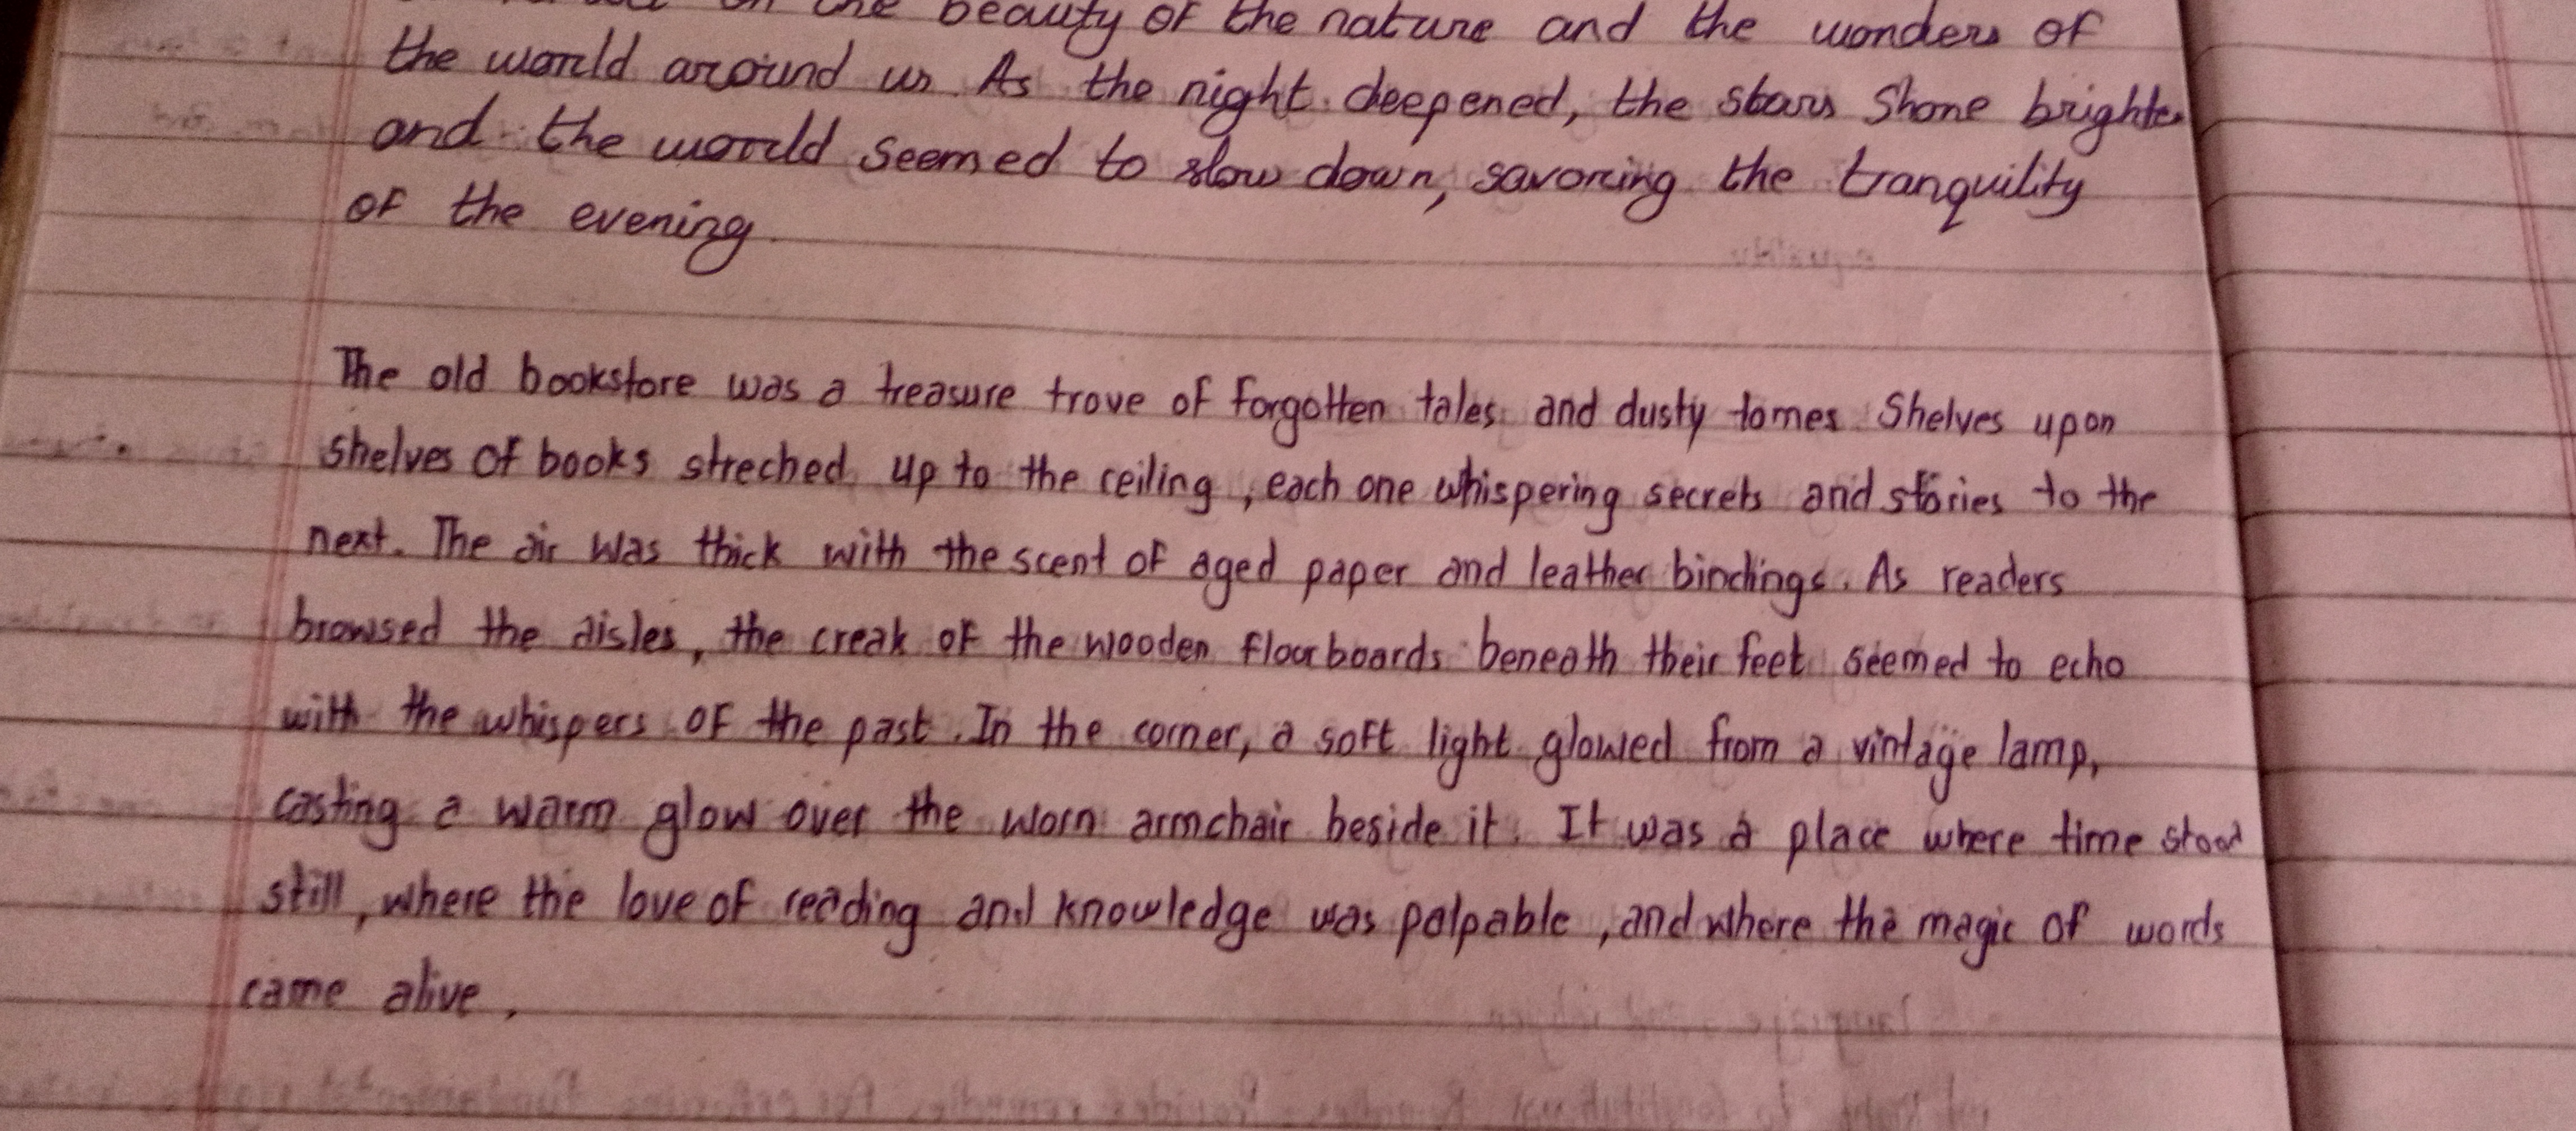 on the beauty of the nature and the wonders of
the world around us. As the night deepened, the stars shone brighter
and the world seemed to slow down, savoring the tranquility
of the evening.
The old bookstore was a treasure trove of forgotten tales and dusty tomes. Shelves upon
shelves of books streched up to the ceiling, each one whispering secrets and stories to the
next. The air was thick with the scent of aged paper and leather bindings. As readers
browsed the aisles, the creak of the wooden floorboards beneath their feet seemed to echo
with the whispers of the past. In the corner, a soft light glowed from a vintage lamp,
casting a warm glow over the worn armchair beside it. It was a place where time stood
still, where the love of reading and knowledge was palpable, and where the magic of words
came alive.